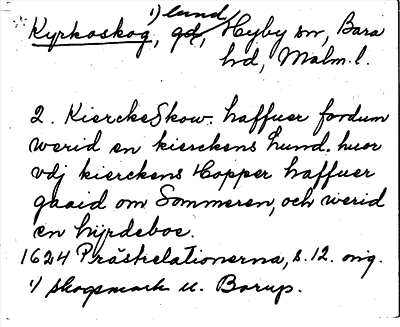 1) lund
Kyrkoskog, gd, Hyby sn, Bara
hd, Malm. l.
2. KierckeSkow. haffuer fordum
werid en kierckens Lund. huor
vdj kierckens Hopper haffuer
gaaid om Sommeren, och werid
en hyrdeboe.
1624 Prästrelationerna, s. 12. orig.
1) skogsmark u. Borup.